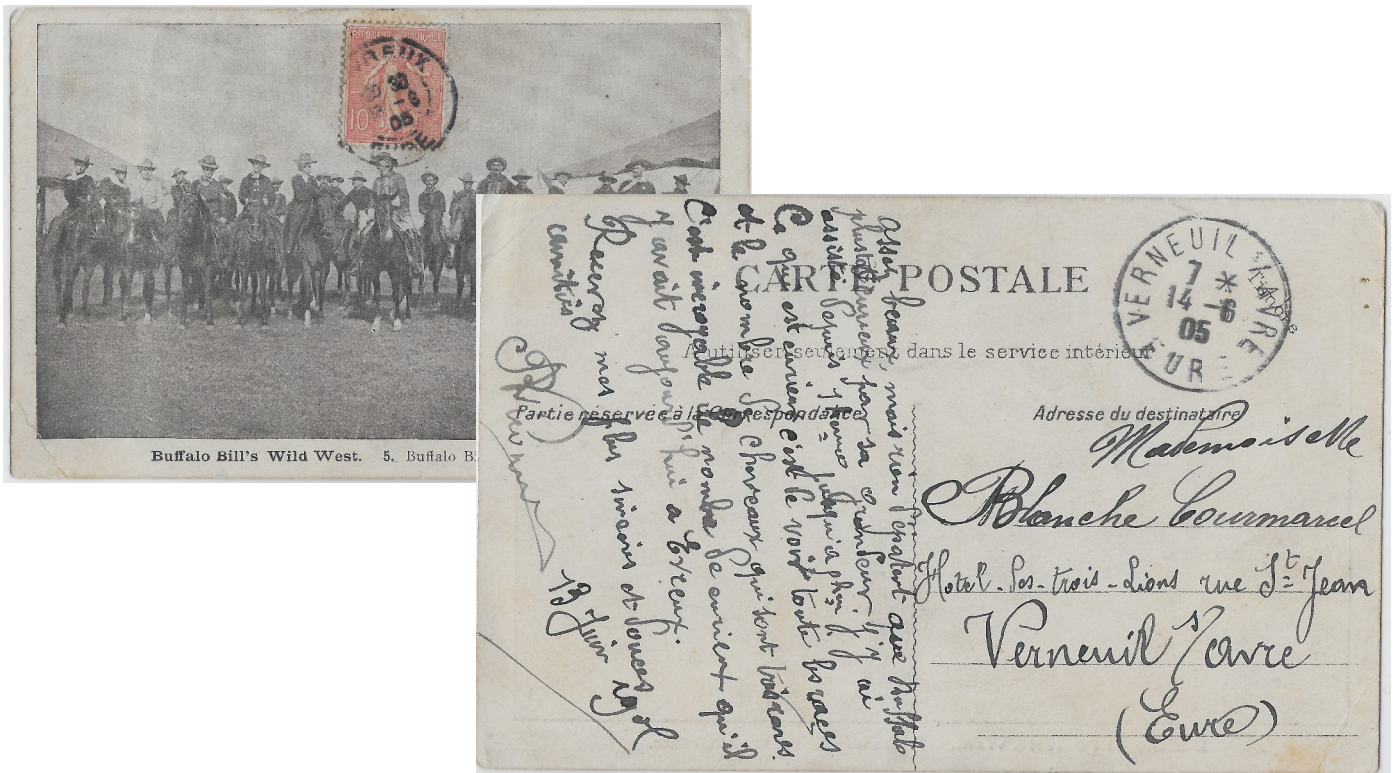 REPUBLIQUE FRANÇAISE
10
05
EURE
Buffalo Bill's Wild West. 5. Buffalo B
CARTE POSTALE
A utiliser seulement dans le service intérieur
Partie réservée à la Correspondance
Adresse du destinataire
VERNEUIL
7 *
14 - 6
05
EURE
Mademoiselle
Blanche Courmarcel
Hotel-des-trois-Lions rue St Jean
Verneuil s/avre
(Eure)
assez beau, mais rien d'épatant que Buffalo
plus par sa grandeur, j'y ai
assisté depuis 1 heure jusqu'à
Ce qui est curieux c'est de voir toute les races
et le nombre de chevaux qui sont très rares
C'est incroyable le nombre de curieux qu'il
y avait aujourd'hui a Evreux.
Recevez mes plus sincères et douces
amitiés
13 Juin